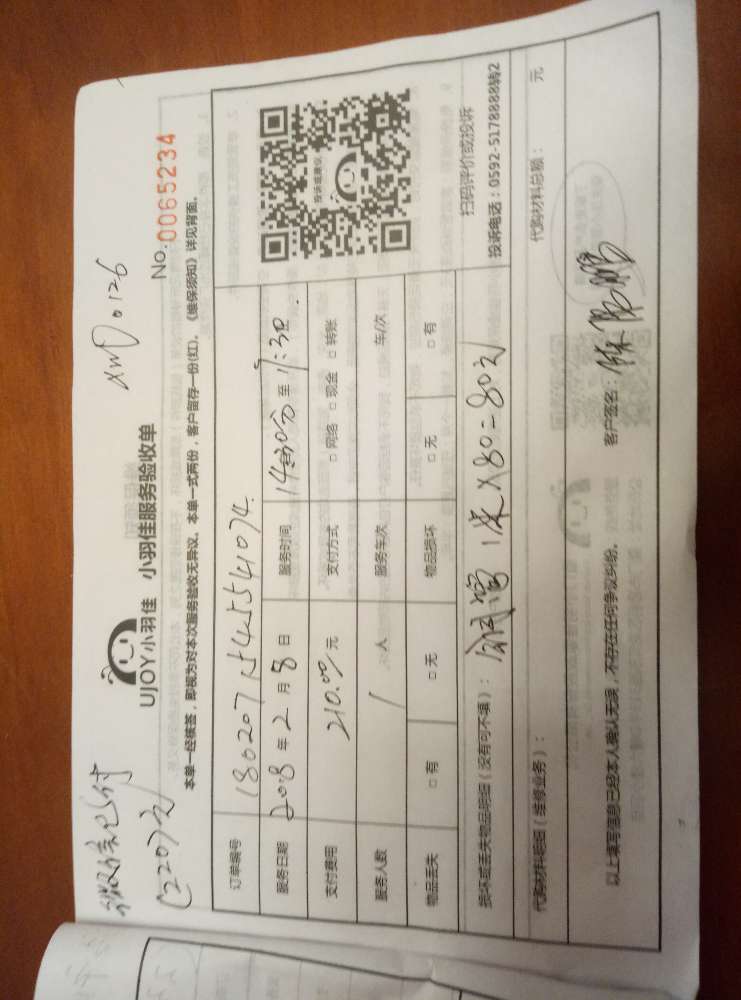 微信已付
(220元)
xmD0126
UJOY小羽佳 小羽佳服务验收单
No.0065234
本单一经核签，即视为对本次服务验收无异议。本单一式两份，客户留存一份(红)。《维保须知》详见背面。
订单编号 1802071545541074
服务日期 2018年2月8日 服务时间 14:30分至17:30
支付费用 210.00元 支付方式 □网络 □现金 □转账
服务人数 1人 服务车次 车/次
物品丢失 □有 □无 物品损坏 □无 □有
投诉或建议
扫码评价或投诉
投诉电话：0592-5178888转2
损坏或丢失物品明细（没有可不填）： 1来×80=80元
代购材料明细（维修业务）： 代购材料总额： 元
以上填写信息已经本人确认无误，不存在任何争议纠纷。 客户签名：